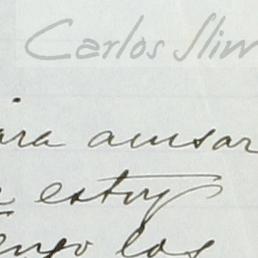 Carlos Slim
ara avisar
estoy
engo los